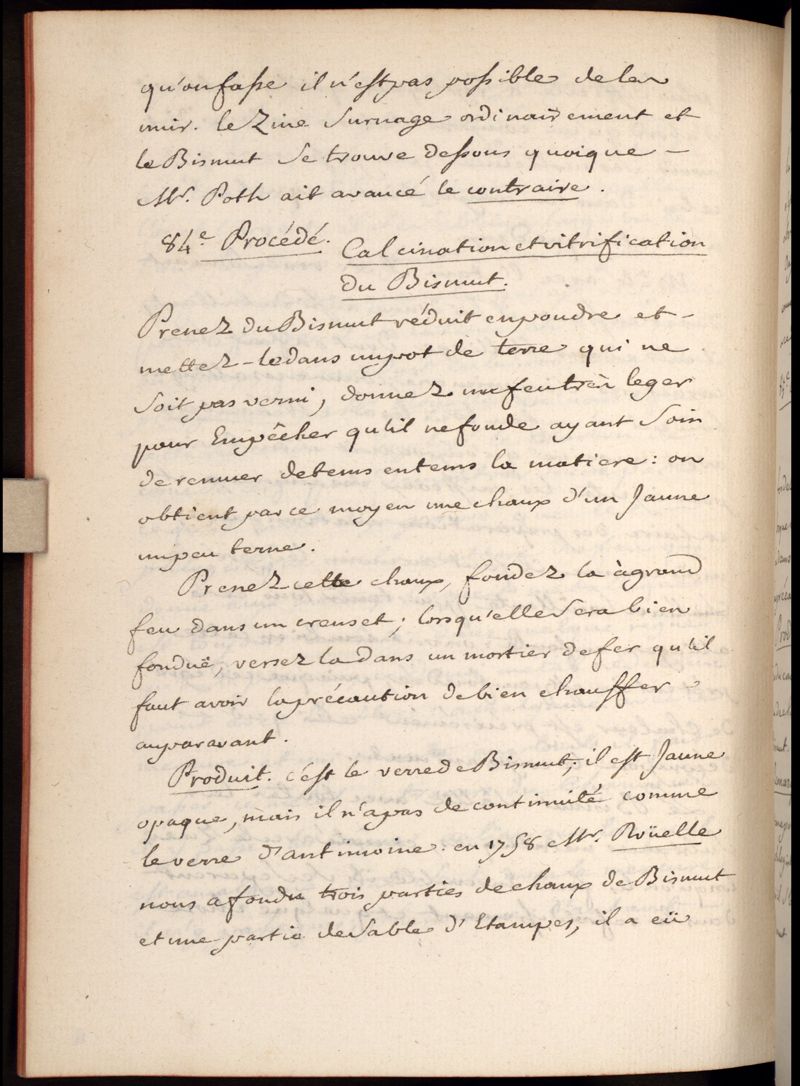 qu'on fasse il n'est pas possible de les
unir. le Zinc surnage ordinairement et
le Bismut se trouve dessous quoique -
Mr. Poth ait avancé le contraire.
84.e Procédé. Calcination et vitrification
du Bismut.
Prenez du Bismut réduit en poudre et -
mettez-le dans un pot de terre qui ne
soit pas verni, donnez un feu très leger
pour Empêcher qu'il ne fonde ayant soin
de remuer de tems en tems la matiere: on
obtient par ce moyen une chaux d'un Jaune
un peu terne.
Prenez cette chaux, fondez la à grand
feu dans un creuset; lorsqu'elle sera bien
fonduë, versez la dans un mortier de fer qu'il
faut avoir la précaution de bien chauffer
auparavant.
Produit. c'est le verre de Bismut; il est Jaune
opaque, mais il n'a pas de continuité comme
le verre d'antimoine. en 1758 Mr. Roüelle
nous a fondu trois parties de chaux de Bismut
et une partie de Sable d'Etampes, il a eü